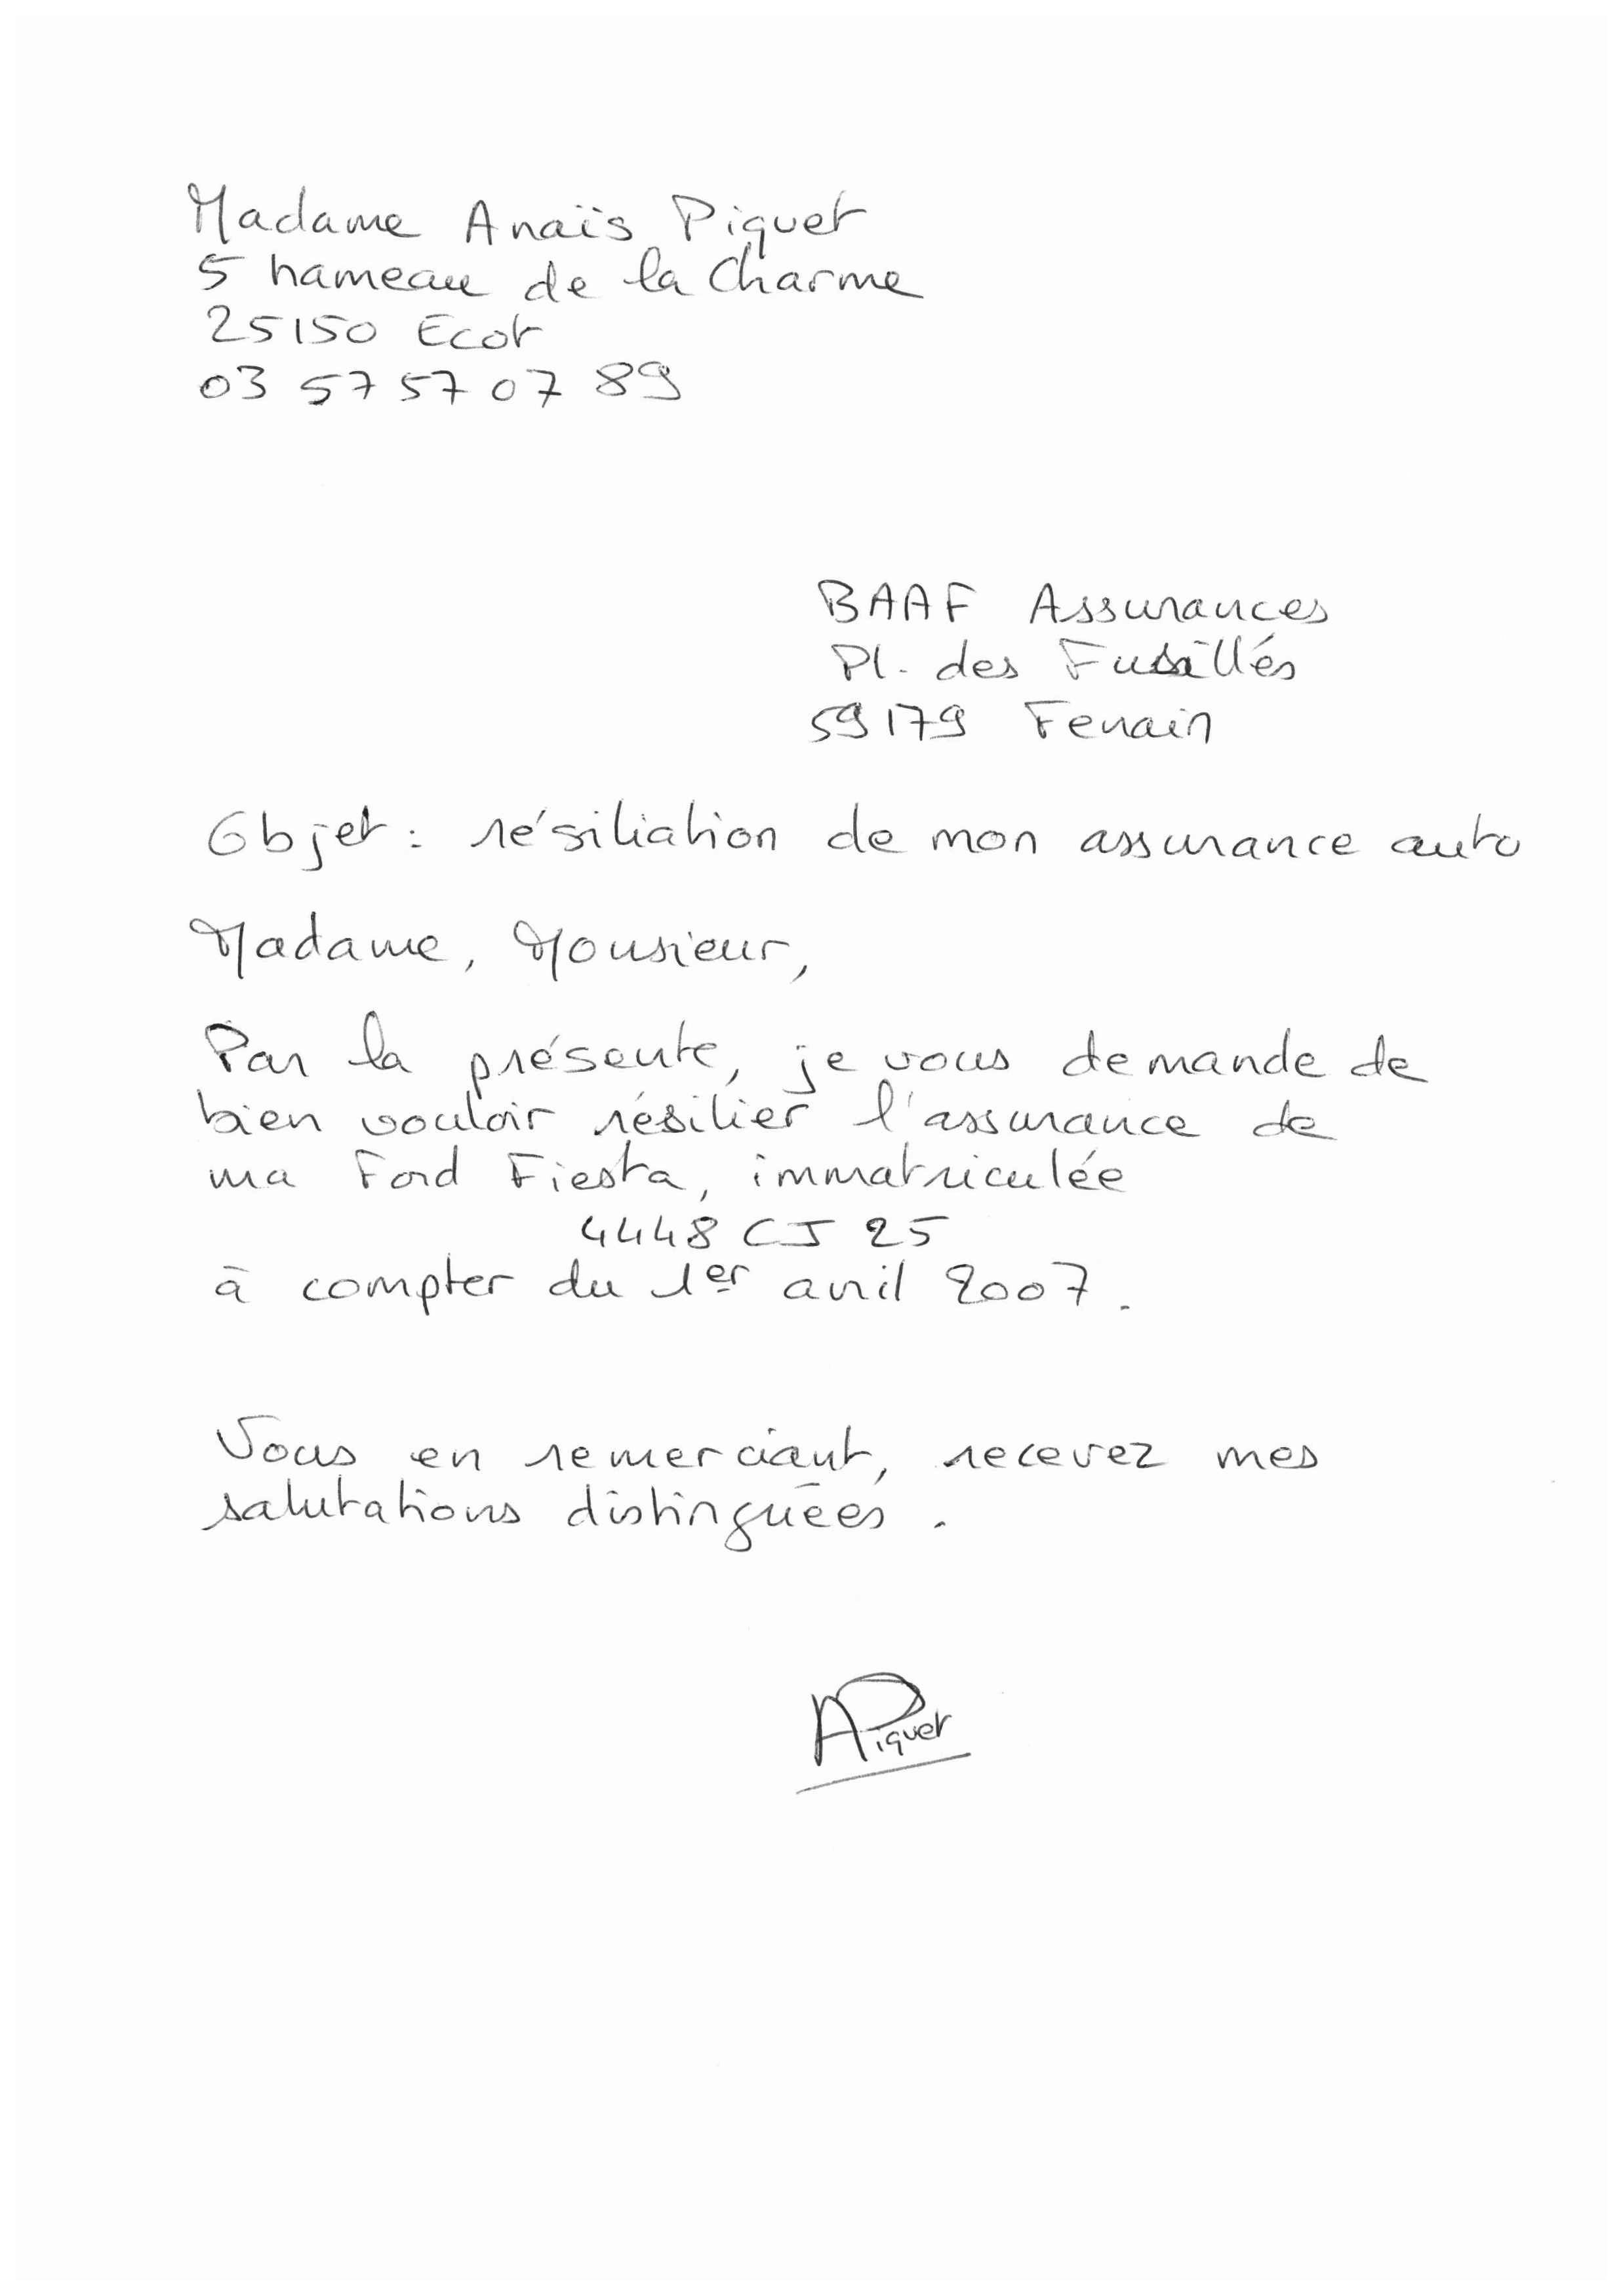 Madame Anaïs Piquet
5 hameau de la Charme
25150 Ecot
03 57 57 07 89
BAAF Assurances
Pl. des Fusillés
59179 Fenain
Objet : résiliation de mon assurance auto
Madame, Monsieur,
Par la présente, je vous demande de
bien vouloir résilier l'assurance de
ma Ford Fiesta, immatriculée
4448 CJ 25
à compter du 1er avril 2007.
Vous en remerciant, recevez mes
salutations distinguées.
APiquet